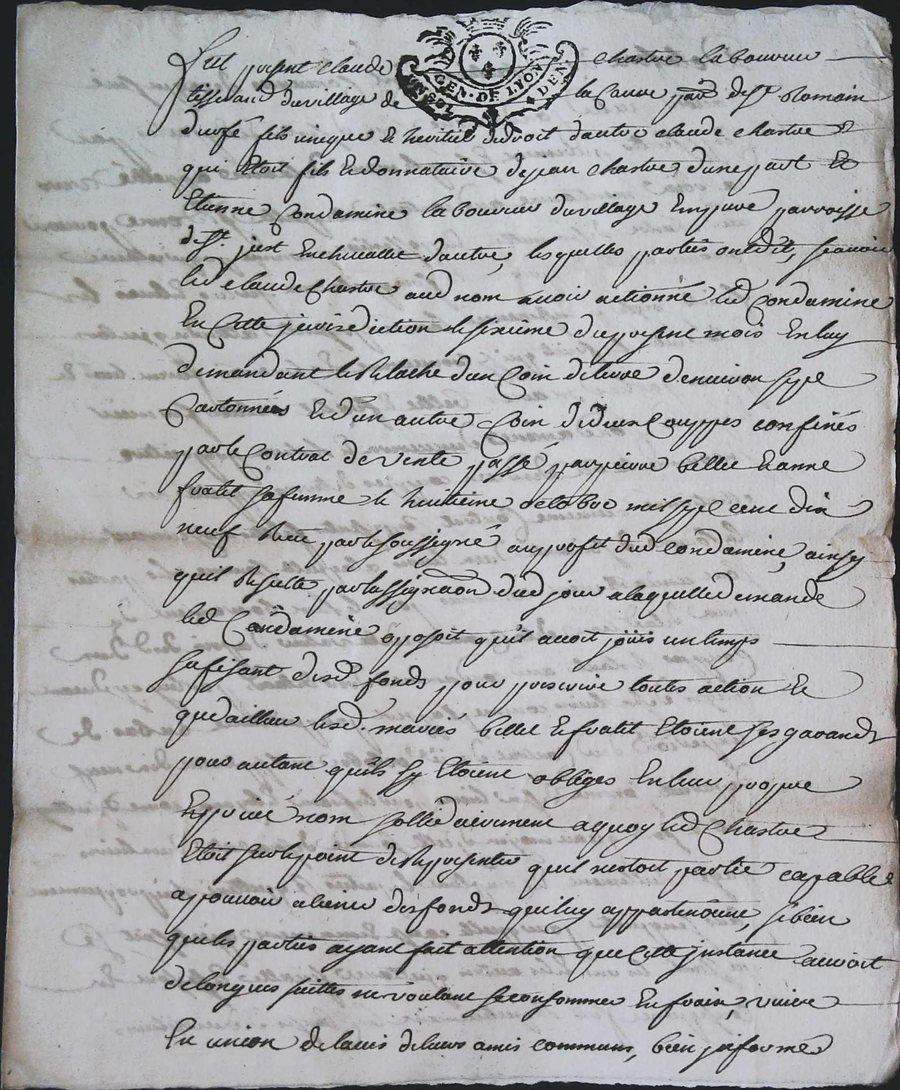 Fut présent Claude Chastre laboureur
GEN. DE LYON
DEN.
tisserand du village de la Cause par.sse de St Romain
durfé fils unique & héritier de droit d'autre Claude Chastre
qui étoit fils & donnataire de Jean Chastre d'une part Et
Etienne Condamine laboureur du village parroisse
de St just En chevallet d'autre, lesquelles parties ont dit, sçavoir
led Claude Chastre aud nom avoir actionné led Condamine
En Cette jurisdiction le sixième du présent mois En luy
demandant le Relache d'un Coin de terre d'environ sept
Cartonnées & d'un autre Coin de deux Couppes confinés
par le Contrat de vente passé par pierre bellet & anne
fratit sa femme le huitième octobre mil sept cent dix
neuf Receu par le soussigné au profit dud Condamine, ainsy
quil Resulte par l'assignaon dud jour a laquelle demande
led Condamine oposoit qu'il avoit joüis un temps
sufisant desd fonds pour prescrire toutes action &
que d'ailleur lesd. mariés bellet & fratit Etoient ses garands
pour autant qu'ils sy Etoient obligés En leur propre
& privé nom sollidairement a quoy led Chastre
Etoit sur le point de Representer quil n'estoit partie capable
a pouvoir aliener des fonds qui luy appartenoient, si bien
que les parties ayant fait attention que Cette instance auroit
de longues suittes ne voulant se consommer En frais, vivre
En union de l'avis de leurs amis communs, bien informé